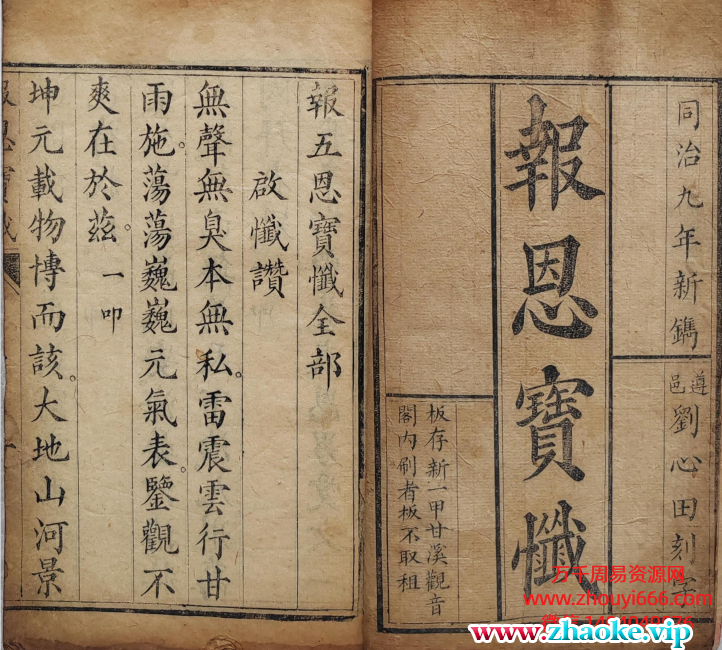 同治九年新鐫
遵邑劉心田刻字
報恩寶懺
板存新一甲甘溪觀音
閣內刷者板不取租
報五恩寶懺全部
啟懺讚
無聲無臭本無私。雷震雲行甘
雨施。蕩蕩巍巍元氣表。鑒觀不
爽在於茲。一叩
坤元載物博而該。大地山河景
報恩寶懺
万千周易资源网
www.zhouyi666.com
www.zhaoke.vip